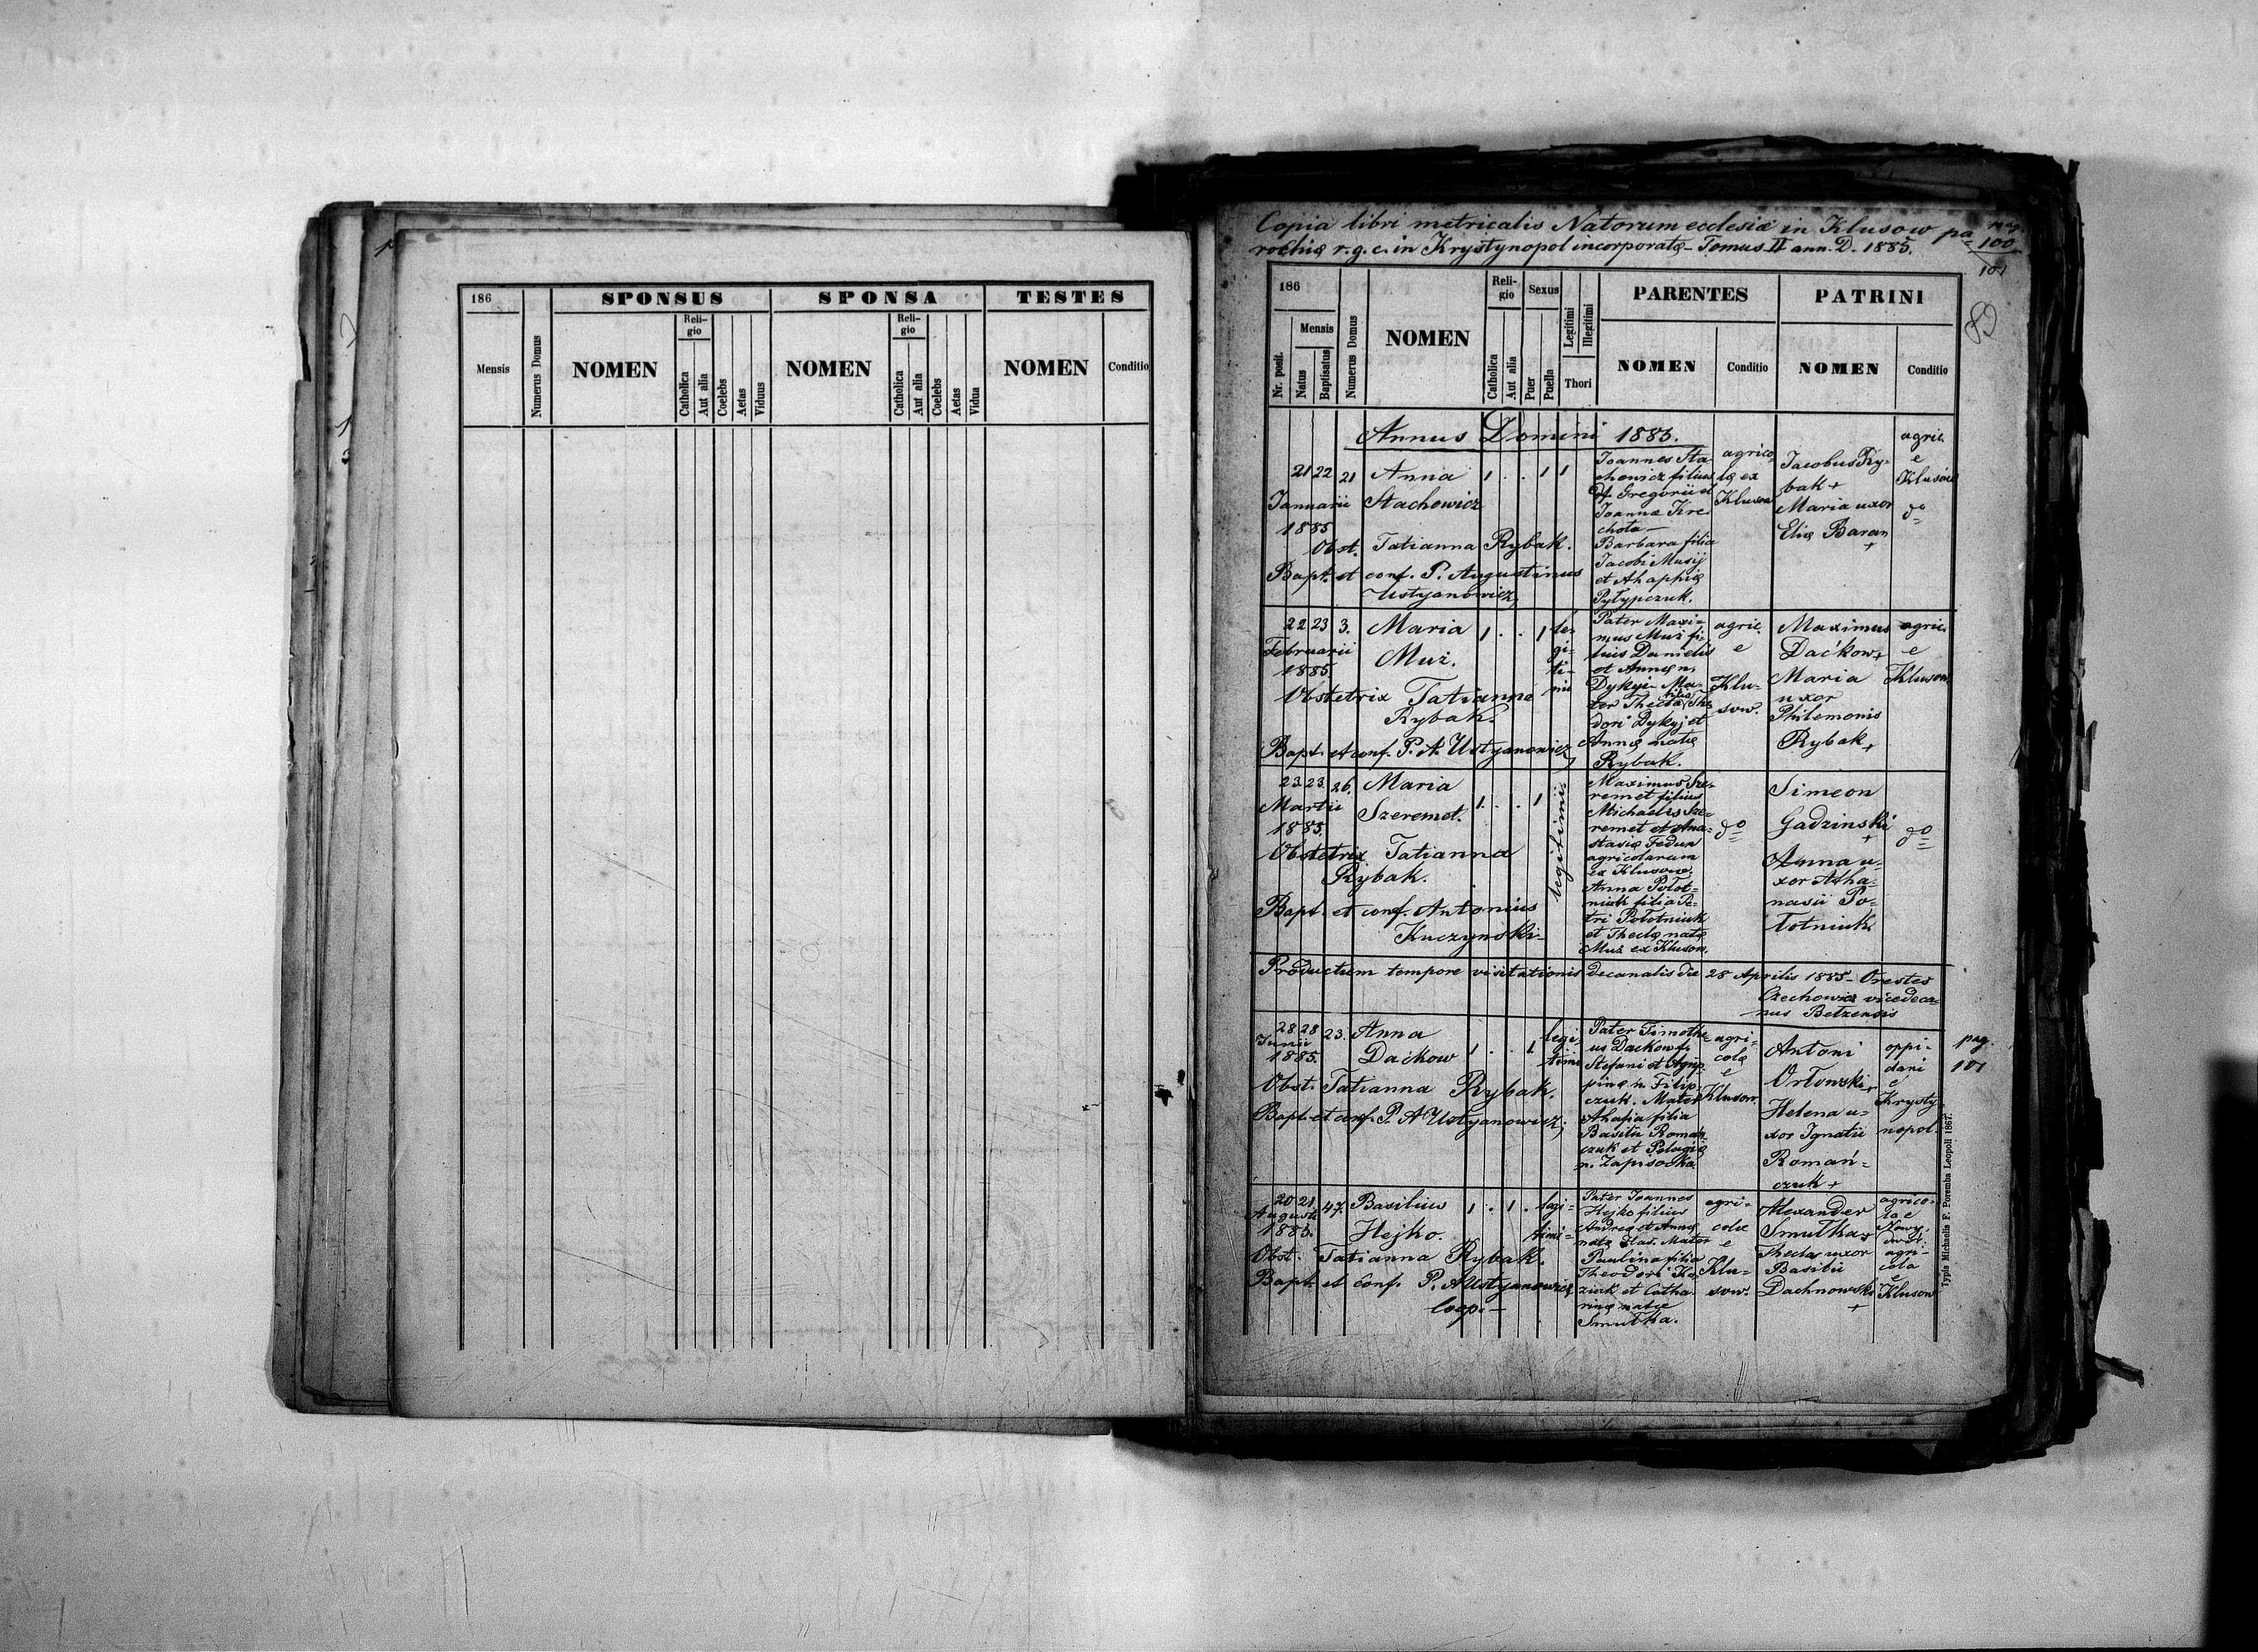 186
SPONSUS
SPONSA
TESTES
Mensis
Numerus Domus
NOMEN
Reli-
gio
Catholica
Aut alia
Coelebs
Aetas
Viduus
NOMEN
Reli-
gio
Catholica
Aut alia
Coelebs
Aetas
Vidua
NOMEN
Conditio
Copia libri metricalis Natorum ecclesiæ in Klusow pa=
rochiæ r. g. c. in Krystynopol incorporatæ - Tomus II ann. D. 1885.
pag.
100
101
186
Nr. posit.
Mensis
Natus
Baptisatus
Numerus Domus
NOMEN
Reli-
gio
Catholica
Aut alia
Sexus
Puer
Puella
Legitimi
Illegitimi
Thori
PARENTES
NOMEN
Conditio
PATRINI
NOMEN
Conditio
Annus Domini 1885.
21 22 21 Anna 1 . . 1 1
Januarii Stachowicz
1885
Obst. Tatianna Rybak.
Bapt. et conf. P. Augustinus
Ustyanowicz
Joannes Sta
chowicz filius
Gregorii et
Joannæ Kre
chota —
Barbara filia
Jacobi Musij
et Ahaphiæ
Pyłypczuk.
agrico
læ ex
Klusow
Jacobus Ry=
bak +
Maria uxor
Eliæ Baran
+
agric.
e
Klusów
do
22 23 3. Maria 1 . . 1 le-
gi-
ti-
mi
Februarii Muż.
1885.
Obstetrix Tatianna
Rybak.
Bapt. et conf. P. A. Ustyanowicz
Pater Maxi=
mus Muż fi-
lius Danielis
et Annæ n.
Dykyi- Ma-
ter Thecla filia The
dori Dykyj et
Annæ natæ
Rybak.
agric.
e
Klu-
sow.
Maximus
Daćkow +
Maria
uxor
Philemonis
Rybak +
agric.
e
Klusow
23. 23. 26. Maria 1. . . 1 legitimi
Martii Szeremet.
1885.
Obstetrix Tatianna
Rybak.
Bapt. et conf. Antonius
Kuczynski-
Maximus Sze-
remet filius
Michaelis Sze-
remet et Ana=
stasiæ Fedun
agricolarum
ex Klusow.
Anna Połot=
niuk filia Pe-
tri Połotniuk
et Theclæ natæ
Muż ex Klusow.
do
Simeon
Gadzinski
+
Anna u-
xor Atha-
nasii Po-
łotniuk
do
Productum tempore visitationis decanalis die 28 Aprilis 1885 - Orestes
Czechowicz vicedeca-
nus Bełzensis
28 28 23. Anna 1 . . 1. legi
timi
Junii
1885. Daćkow
Obst. Tatianna Rybak.
Bapt. et conf. P. A Ustyanowicz
Pater Timothe=
us Daćkow f.
Stefani et Agrip=
pinæ n. Filip-
czuk. Mater
Ahafia filia
Basilii Roman
czuk et Pelagiæ
n. Zapisocka
agri-
colæ
e
Klusow
Antoni
Orłowski +
Helena u-
xor Ignatii
Romań=
czuk +
oppi-
dani
e
Krysty
nopol.
pag.
101
20 21 47. Basilius 1 . 1 . legi=
timi=
Augusti
1885. Hejko.
Obst. Tatianna Rybak.
Bapt. et conf. P. A Ustyanowicz
coop. —
Pater Joannes
Hejko filius
Andreæ et Annæ
natæ Mater
Paulina filia
Theodori Ko
ziuk et Catha
rinæ natæ
Smutka.
agri-
colæ
e
Klu=
sow.
Alexander
Smutka +
Thecla uxor
Basilii
Dachnowski
+
agrico-
la e
Nowy
dwór.
agri-
cola
e
Klusow
Typis Michaelis F. Poremba Leopoli 1867.